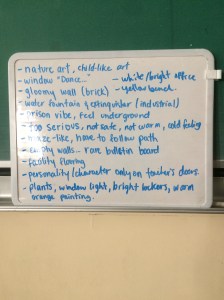 - nature art, child-like art
- window "Dance..." - white/bright office
- gloomy wall (brick) - yellow bench
- water fountain & extinguisher (industrial)
- prison vibe, feel underground
- too serious, not safe, not warm, cold feeling
- maze-like, have to follow path
- empty walls... rare bulletin board
- facility flooring
- personality/character only on teacher's doors.
- plants, window light, bright lockers, warm
orange painting.